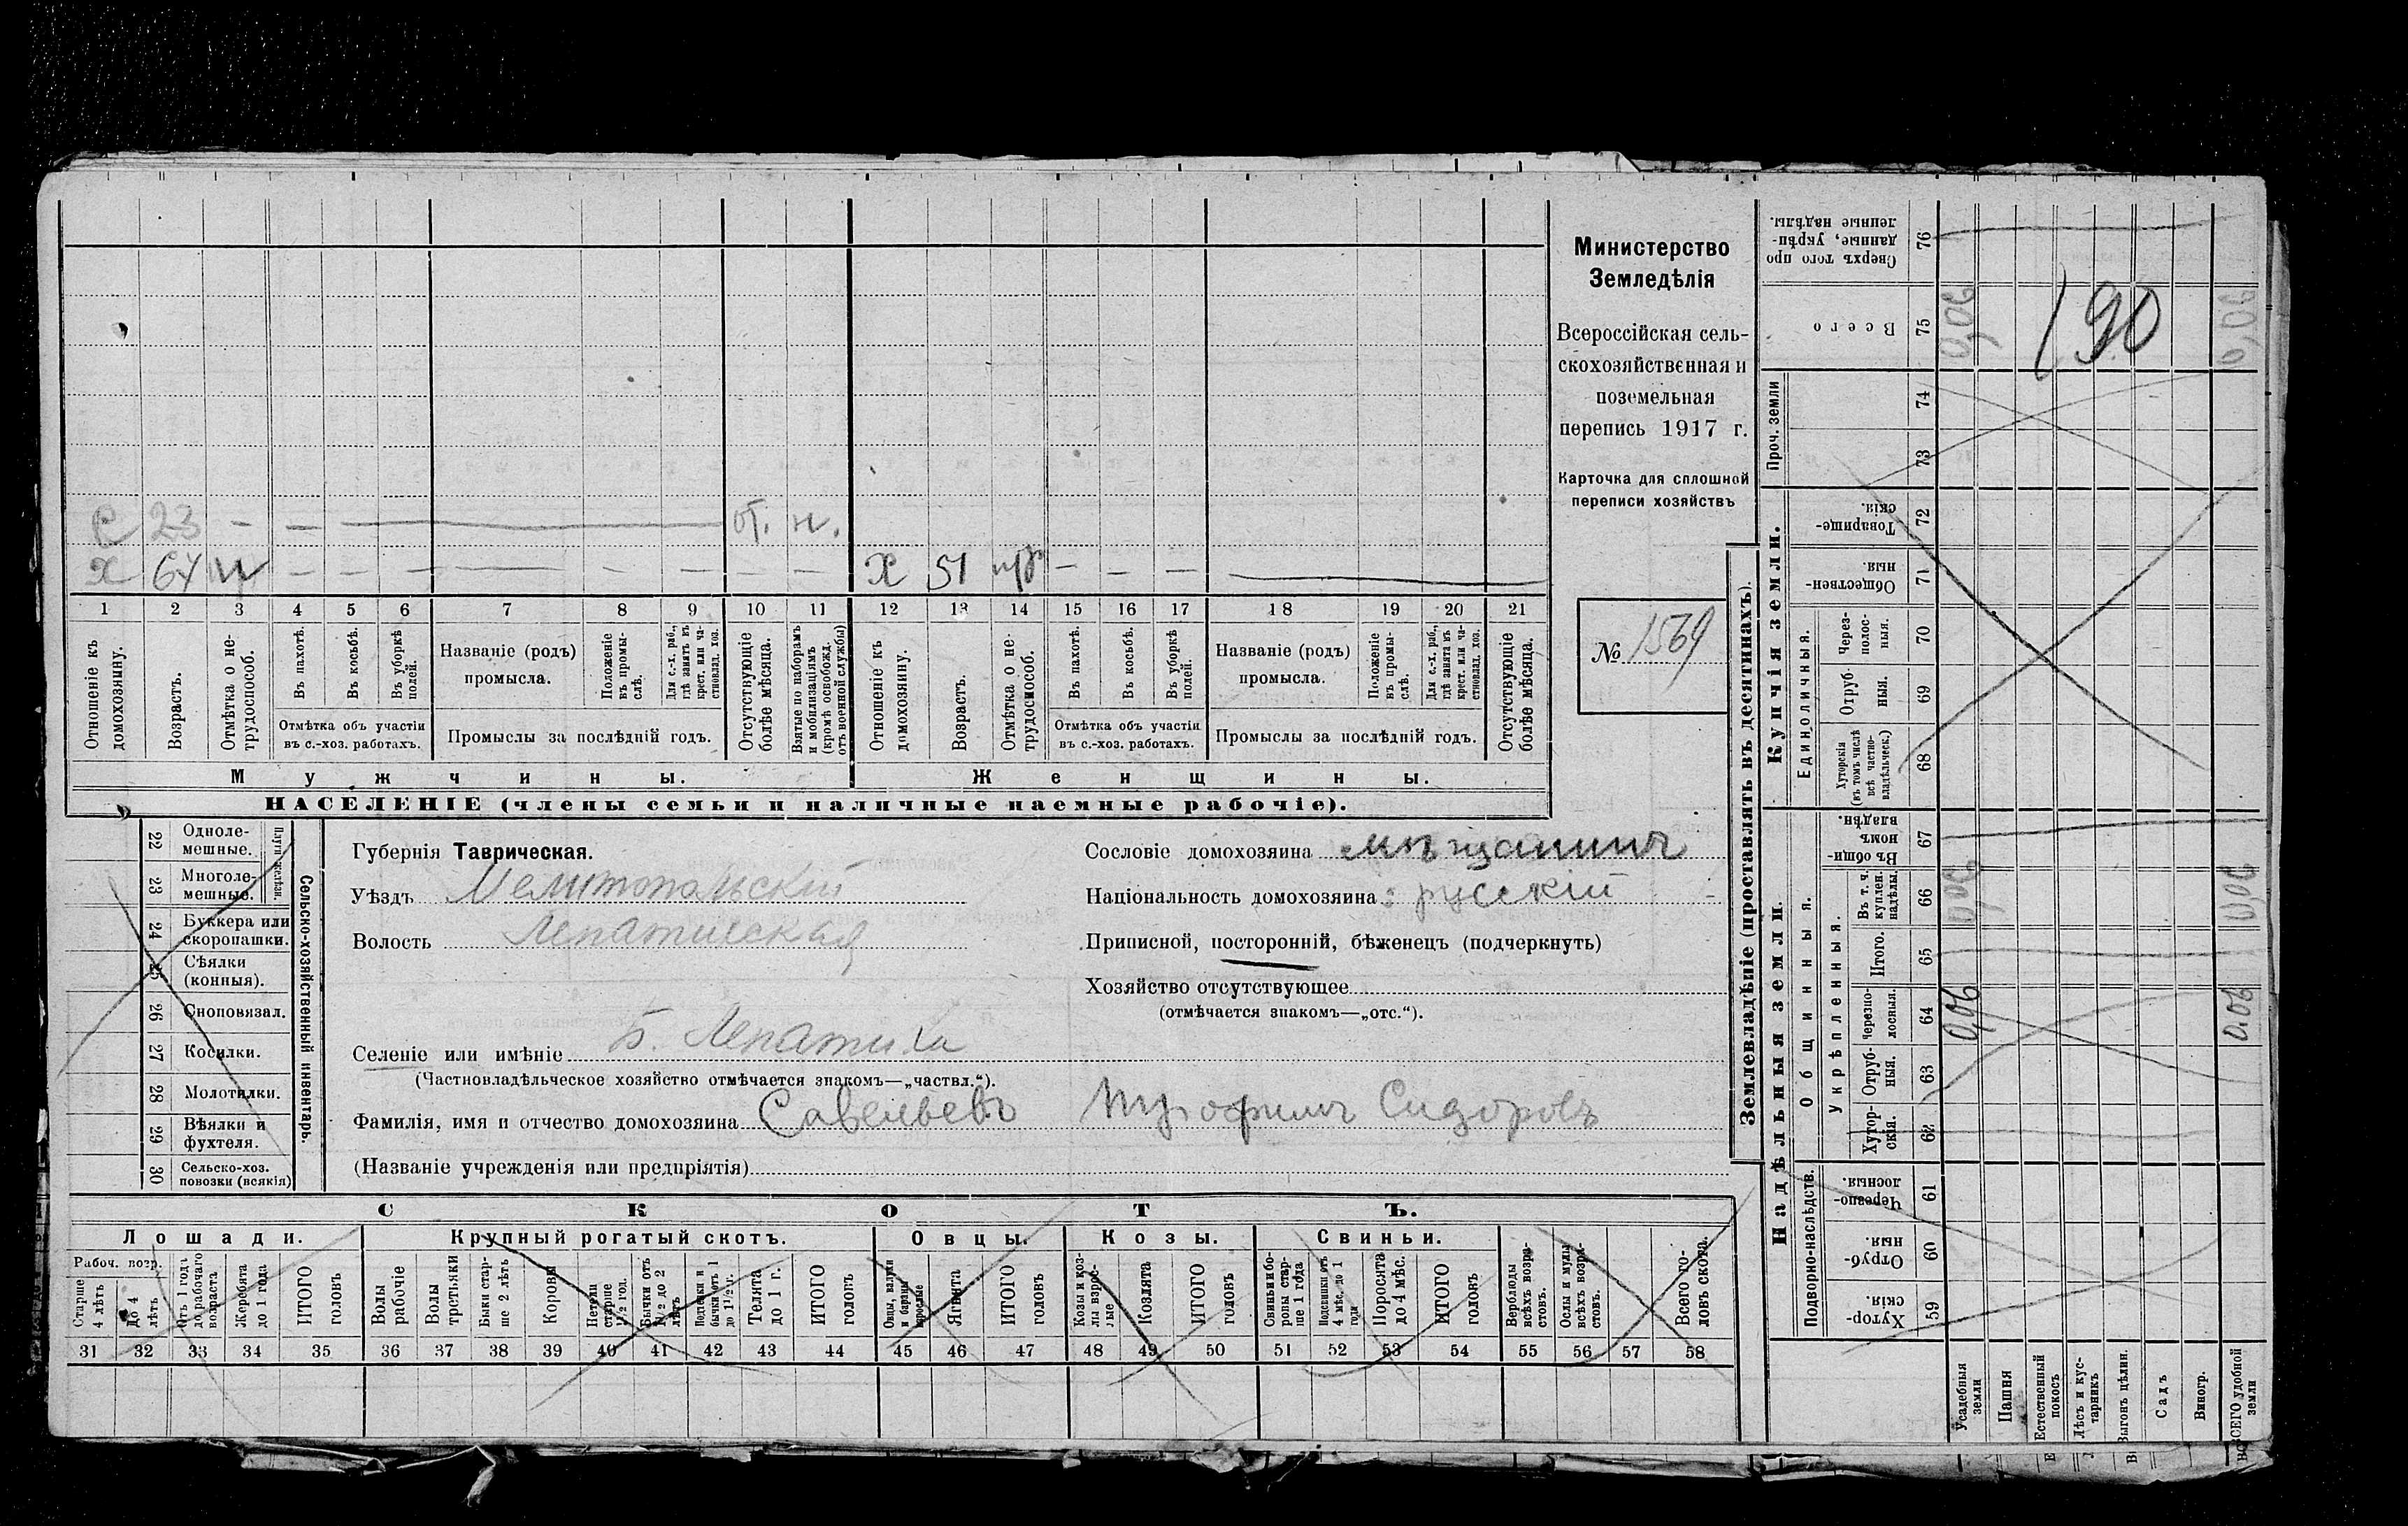 С 23 — — — от. н.
Х 64 н — — — — — — — — Х 51 — — —
1 2 3 4 5 6 7 8 9 10 11 12 13 14 15 16 17 18 19 20 21
Отношеніе къ домохозяину.
Возрастъ.
Отмѣтка о не-
трудоспособ.
Въ пахотѣ.
Въ косьбѣ.
Въ уборкѣ
полей.
Отмѣтка объ участіи
въ с.-хоз. работахъ.
Названіе (родъ)
промысла.
Положеніе
въ промы-
слѣ.
Для с.-х. раб.,
гдѣ занятъ въ
крест. или ча-
стновлад. хоз.
Промыслы за послѣдній годъ.
Отсутствующіе
болѣе мѣсяца.
Взятые по наборамъ
и мобилизаціямъ
(кромѣ освобожд.
отъ военной службы)
Отношеніе къ
домохозяину.
Возрастъ.
Отмѣтка о не-
трудоспособ.
Въ пахотѣ.
Въ косьбѣ.
Въ уборкѣ
полей.
Отмѣтка объ участіи
въ с.-хоз. работахъ.
Названіе (родъ)
промысла.
Положеніе
въ промы-
слѣ.
Для с.-х. раб.,
гдѣ занята въ
крест. или ча-
стновлад. хоз.
Промыслы за послѣдній годъ.
Отсутствующіе
болѣе мѣсяца.
Мужчины. Женщины.
НАСЕЛЕНІЕ (члены семьи и наличные наемные рабочіе).
Министерство
Земледѣлія
Всероссійская сель-
скохозяйственная и
поземельная
перепись 1917 г.
Карточка для сплошной
переписи хозяйствъ
№ 1569
22 Одноле-
мешные.
23 Многоле-
мешные.
24 Буккера или
скоропашки.
25 Сѣялки
(конныя).
26 Сноповязал.
27 Косилки.
28 Молотилки.
29 Вѣялки и
фухтеля.
30 Сельско-хоз.
повозки (всякія)
Сельско-хозяйственный инвентарь.
Губернія Таврическая.
Уѣздъ Мелитопольскій
Волость Лепатиская
Селеніе или имѣніе Б. Лепатиха
(Частновладѣльческое хозяйство отмѣчается знакомъ—„частвл.“).
Фамилія, имя и отчество домохозяина Савельевъ Трофимъ Сидоровъ
(Названіе учрежденія или предпріятія)
Сословіе домохозяина мѣщанинъ
Національность домохозяина: русскій
Приписной, посторонній, бѣженецъ (подчеркнуть)
Хозяйство отсутствующее
(отмѣчается знакомъ—„отс.“).
СКОТЪ.
Лошади. Крупный рогатый скотъ. Овцы. Козы. Свиньи.
Рабоч. возр.
Старше
4 лѣтъ
До 4
лѣтъ
Отъ 1 года
до рабочаго
возраста
Жеребята
до 1 года
ИТОГО
головъ
Волы
рабочіе
Волы
третьяки
Быки стар-
ше 2 лѣтъ
Коровы
Нетели
старше
1 1/2 год.
Бычки отъ
1 1/2 до 2
лѣтъ
Телята
до 1 г.
ИТОГО
головъ
Овцы, валухи
и бараны
взрослые
Ягнята
ИТОГО
головъ
Козы и коз-
лы взрос-
лые
Козлята
ИТОГО
головъ
Свиньи и бо-
ровы стар-
ше 1 года
Подсвинки отъ
4 мѣс. до 1
года
Поросята
до 4 мѣс.
ИТОГО
головъ
Верблюды
всѣхъ возра-
стовъ.
Ослы и мулы
всѣхъ возра-
стовъ.
Всего го-
ловъ скота.
31 32 33 34 35 36 37 38 39 40 41 42 43 44 45 46 47 48 49 50 51 52 53 54 55 56 57 58
Землевладѣніе (проставлять въ десятинахъ).
Сверхъ того про
данные, укрѣп-
ленные надѣлы.
76
Всего
75
0,06
190
0,06
Проч. земли
74
73
Купчія земли.
Товарище-
скія.
72
Обществен-
ныя.
71
Единоличныя.
Через-
полос-
ныя.
70
Отруб-
ныя.
69
Хуторскія
(въ томъ числѣ
всѣ частно-
владѣльческ.)
68
Надѣльныя земли.
Общинныя.
Въ общи-
номъ
владѣн.
67
Укрѣпленныя.
Въ т. ч.
куплен.
надѣлы.
66
0,06
0,06
Итого.
65
Черезпо-
лосныя.
64
0,06
0,06
Отруб-
ныя.
63
Хутор-
скія.
62
Подворно-наслѣдств.
Черезпо-
лосныя.
61
Отруб-
ныя.
60
Хутор-
скія.
59
Усадебныя
земли
Пашня
Естественный
покосъ
Лѣсъ и кус-
тарникъ
Выгонъ цѣлин.
Садъ
Виногр.
ВСЕГО удобной
земли